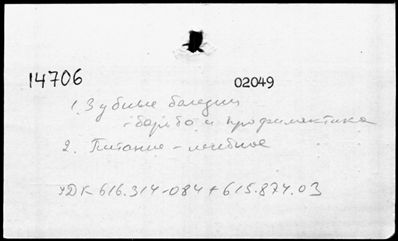 14706 02049
1. Зубные болезни
- борьба и профилактика
2. Питание - лечебное
УДК 616.314-084 + 615.874.03